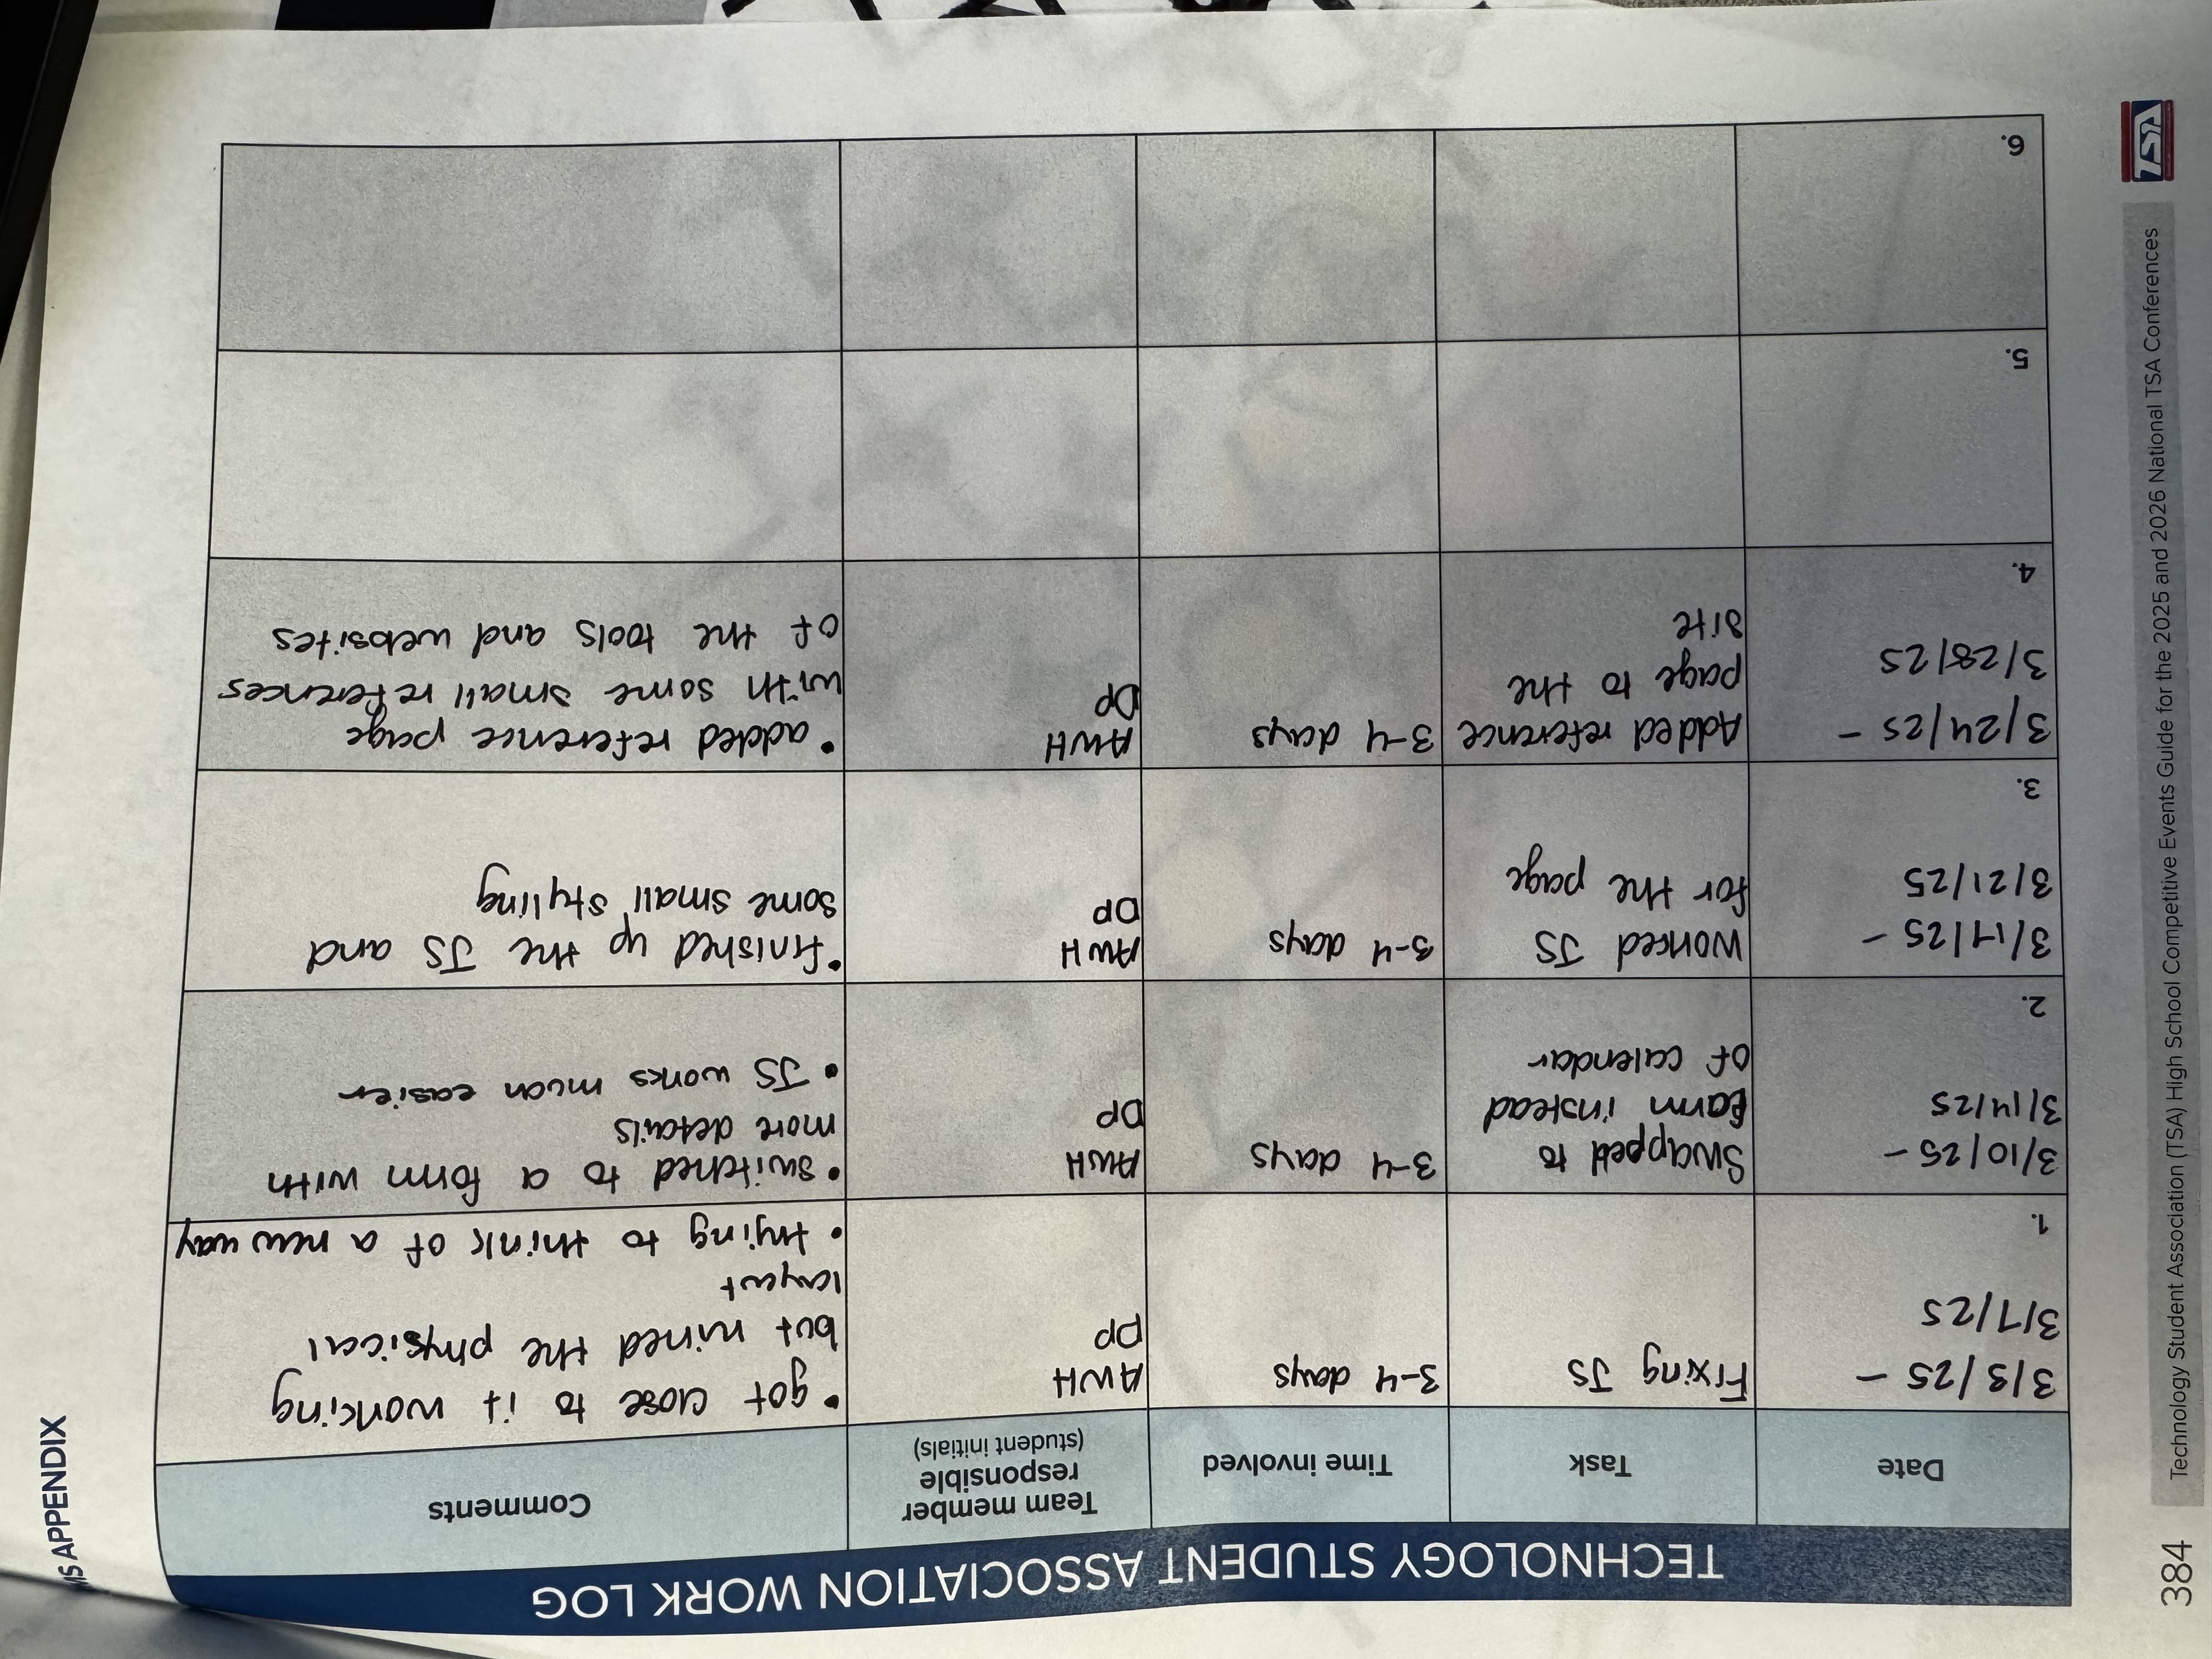 MS APPENDIX
TECHNOLOGY STUDENT ASSOCIATION WORK LOG
Date
Task
Time involved
Team member
responsible
(student initials)
Comments
3/3/25 -
3/7/25
1.
Fixing JS
3-4 days
AWH
DP
• got close to it working
but ruined the physical
layout
• trying to think of a new way
3/10/25 -
3/14/25
2.
Swapped to
form instead
of calendar
3-4 days
AWH
DP
• switched to a form with
more details
• JS works much easier
3/17/25 -
3/21/25
3.
Worked JS
for the page
3-4 days
AWH
DP
• finished up the JS and
some small styling
3/24/25 -
3/28/25
4.
Added reference
page to the
site
3-4 days
AWH
DP
• added reference page
with some small references
of the tools and websites
5.
6.
384
Technology Student Association (TSA) High School Competitive Events Guide for the 2025 and 2026 National TSA Conferences
TSA